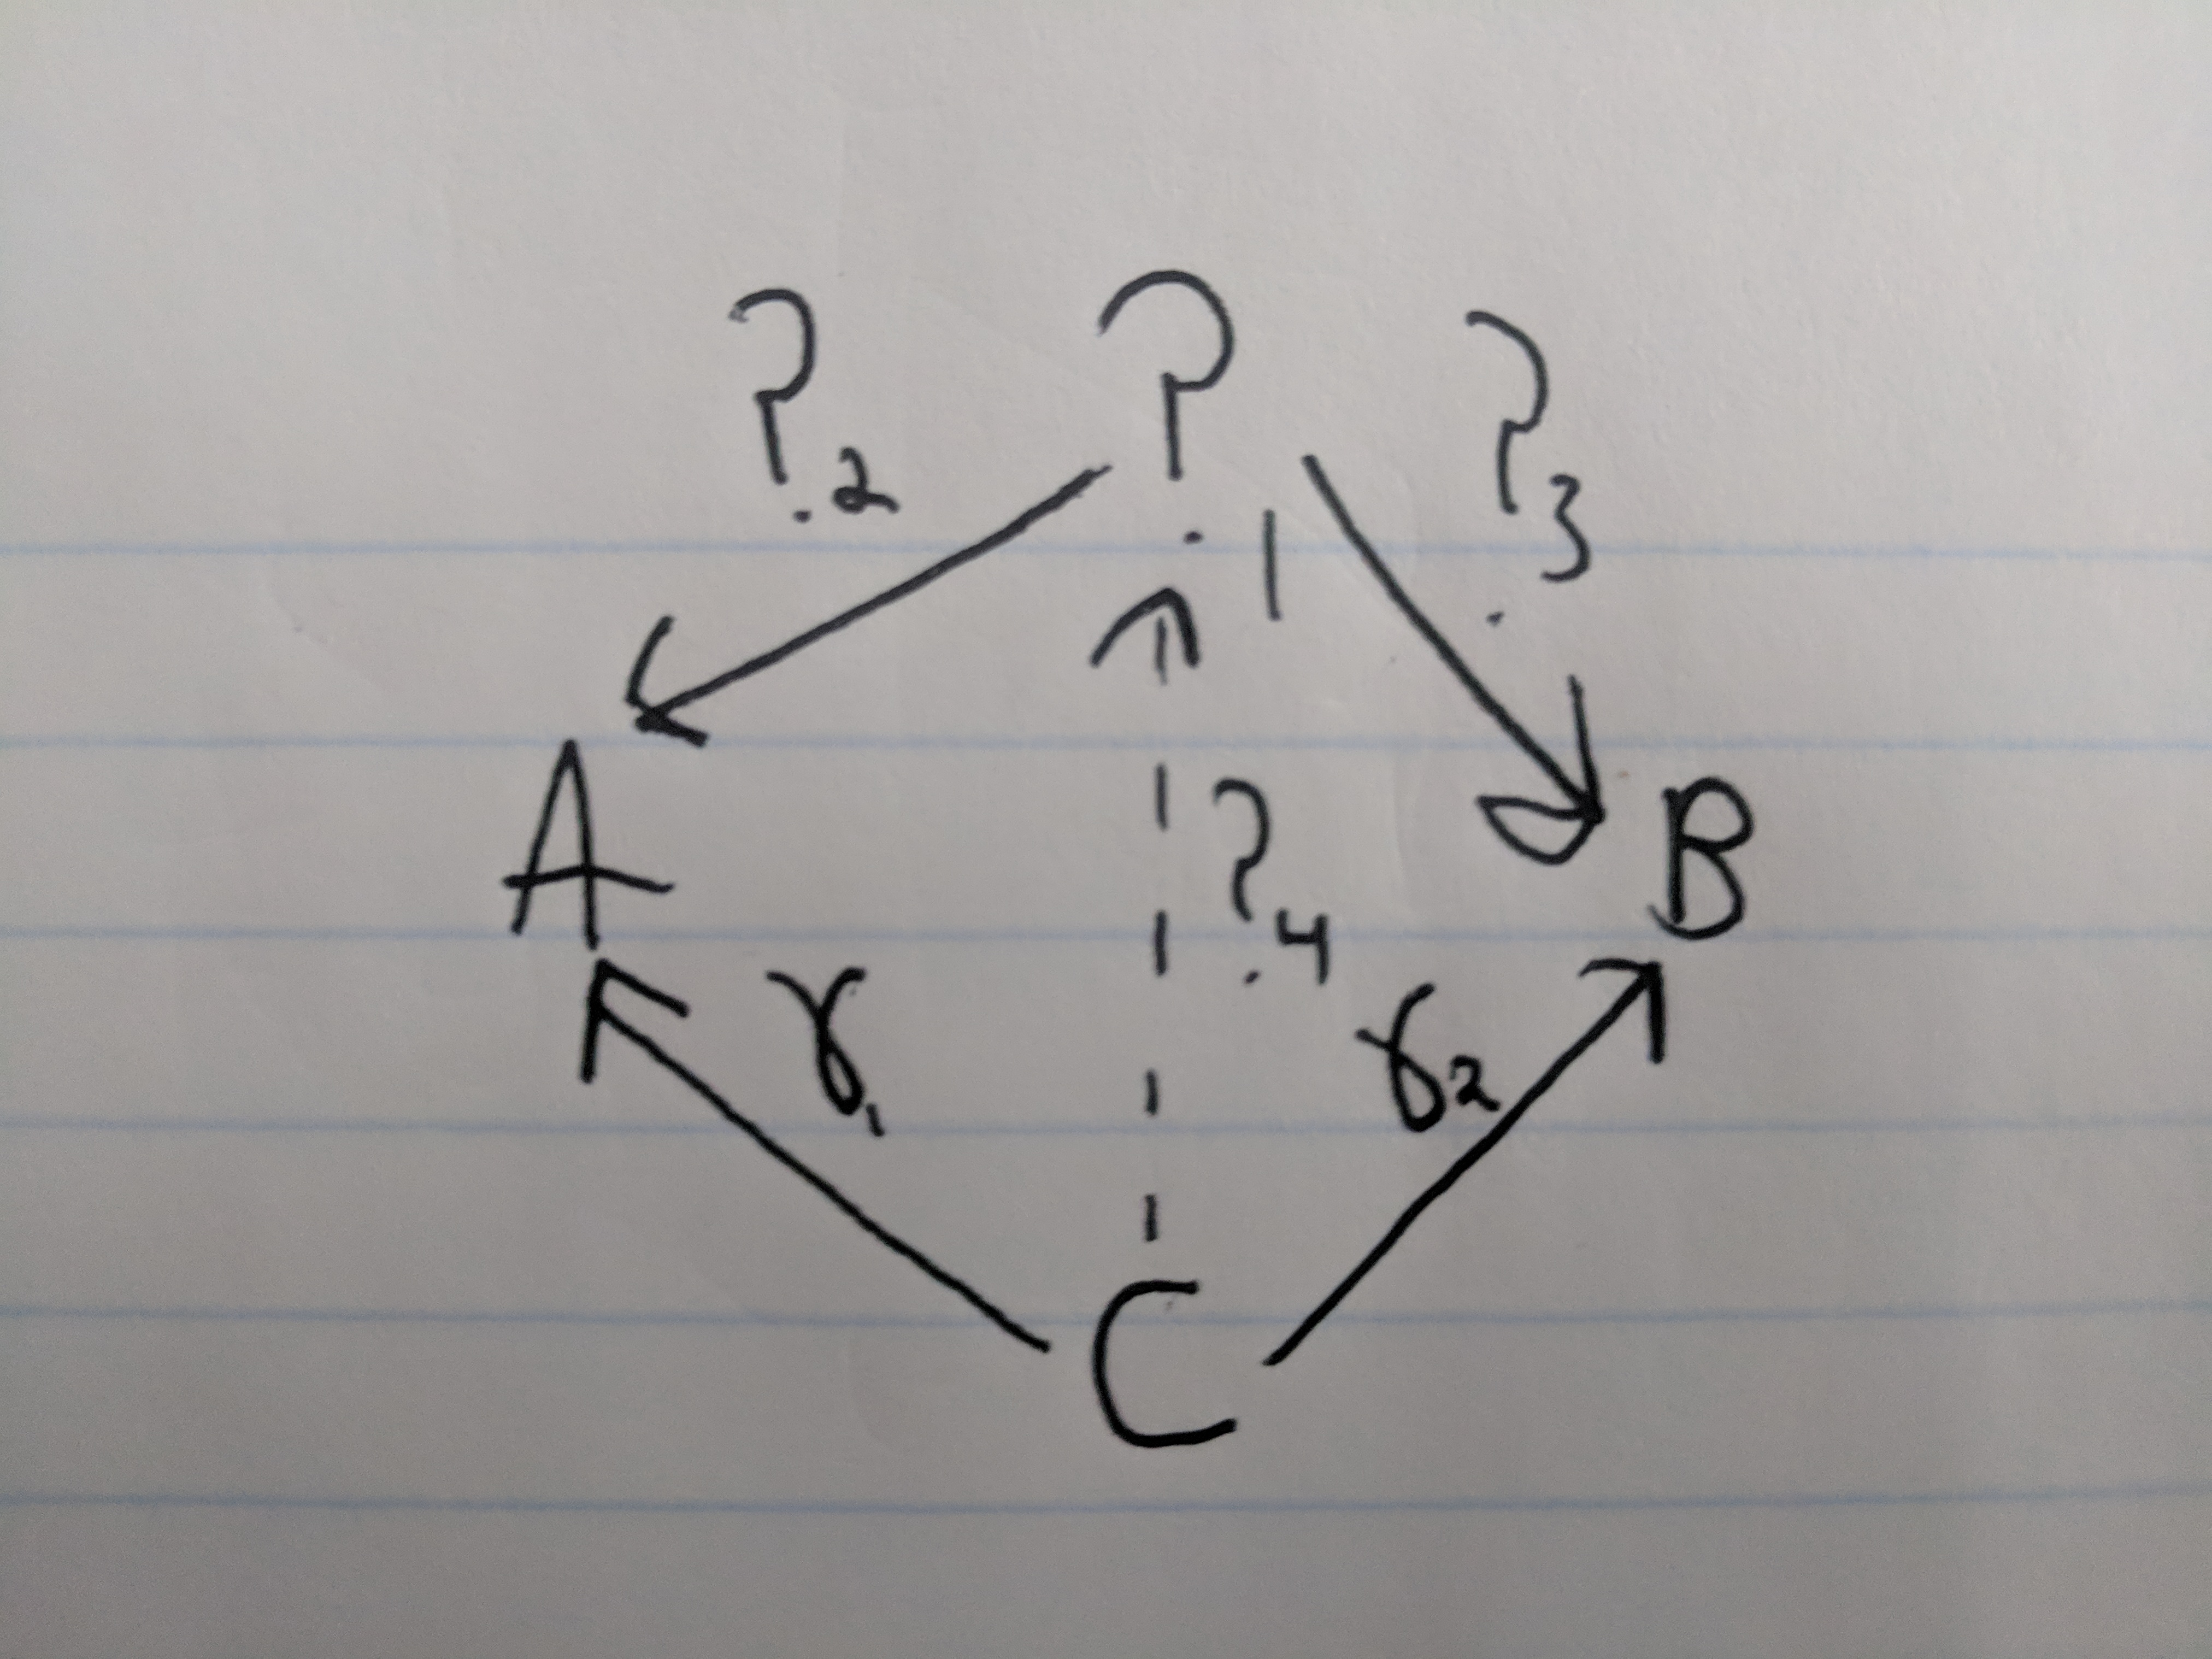 ?2 ?1 ?3
A B
?4
γ1 γ2
C